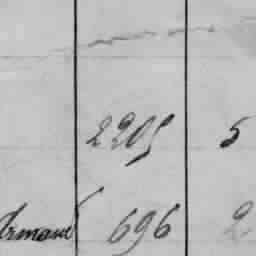 2205 5
Armand 696 2